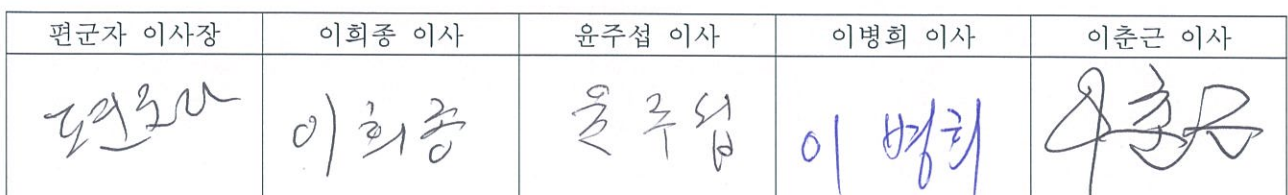 편군자 이사장 이희종 이사 윤주섭 이사 이병희 이사 이춘근 이사
이희종 윤주섭 이병희 이춘근